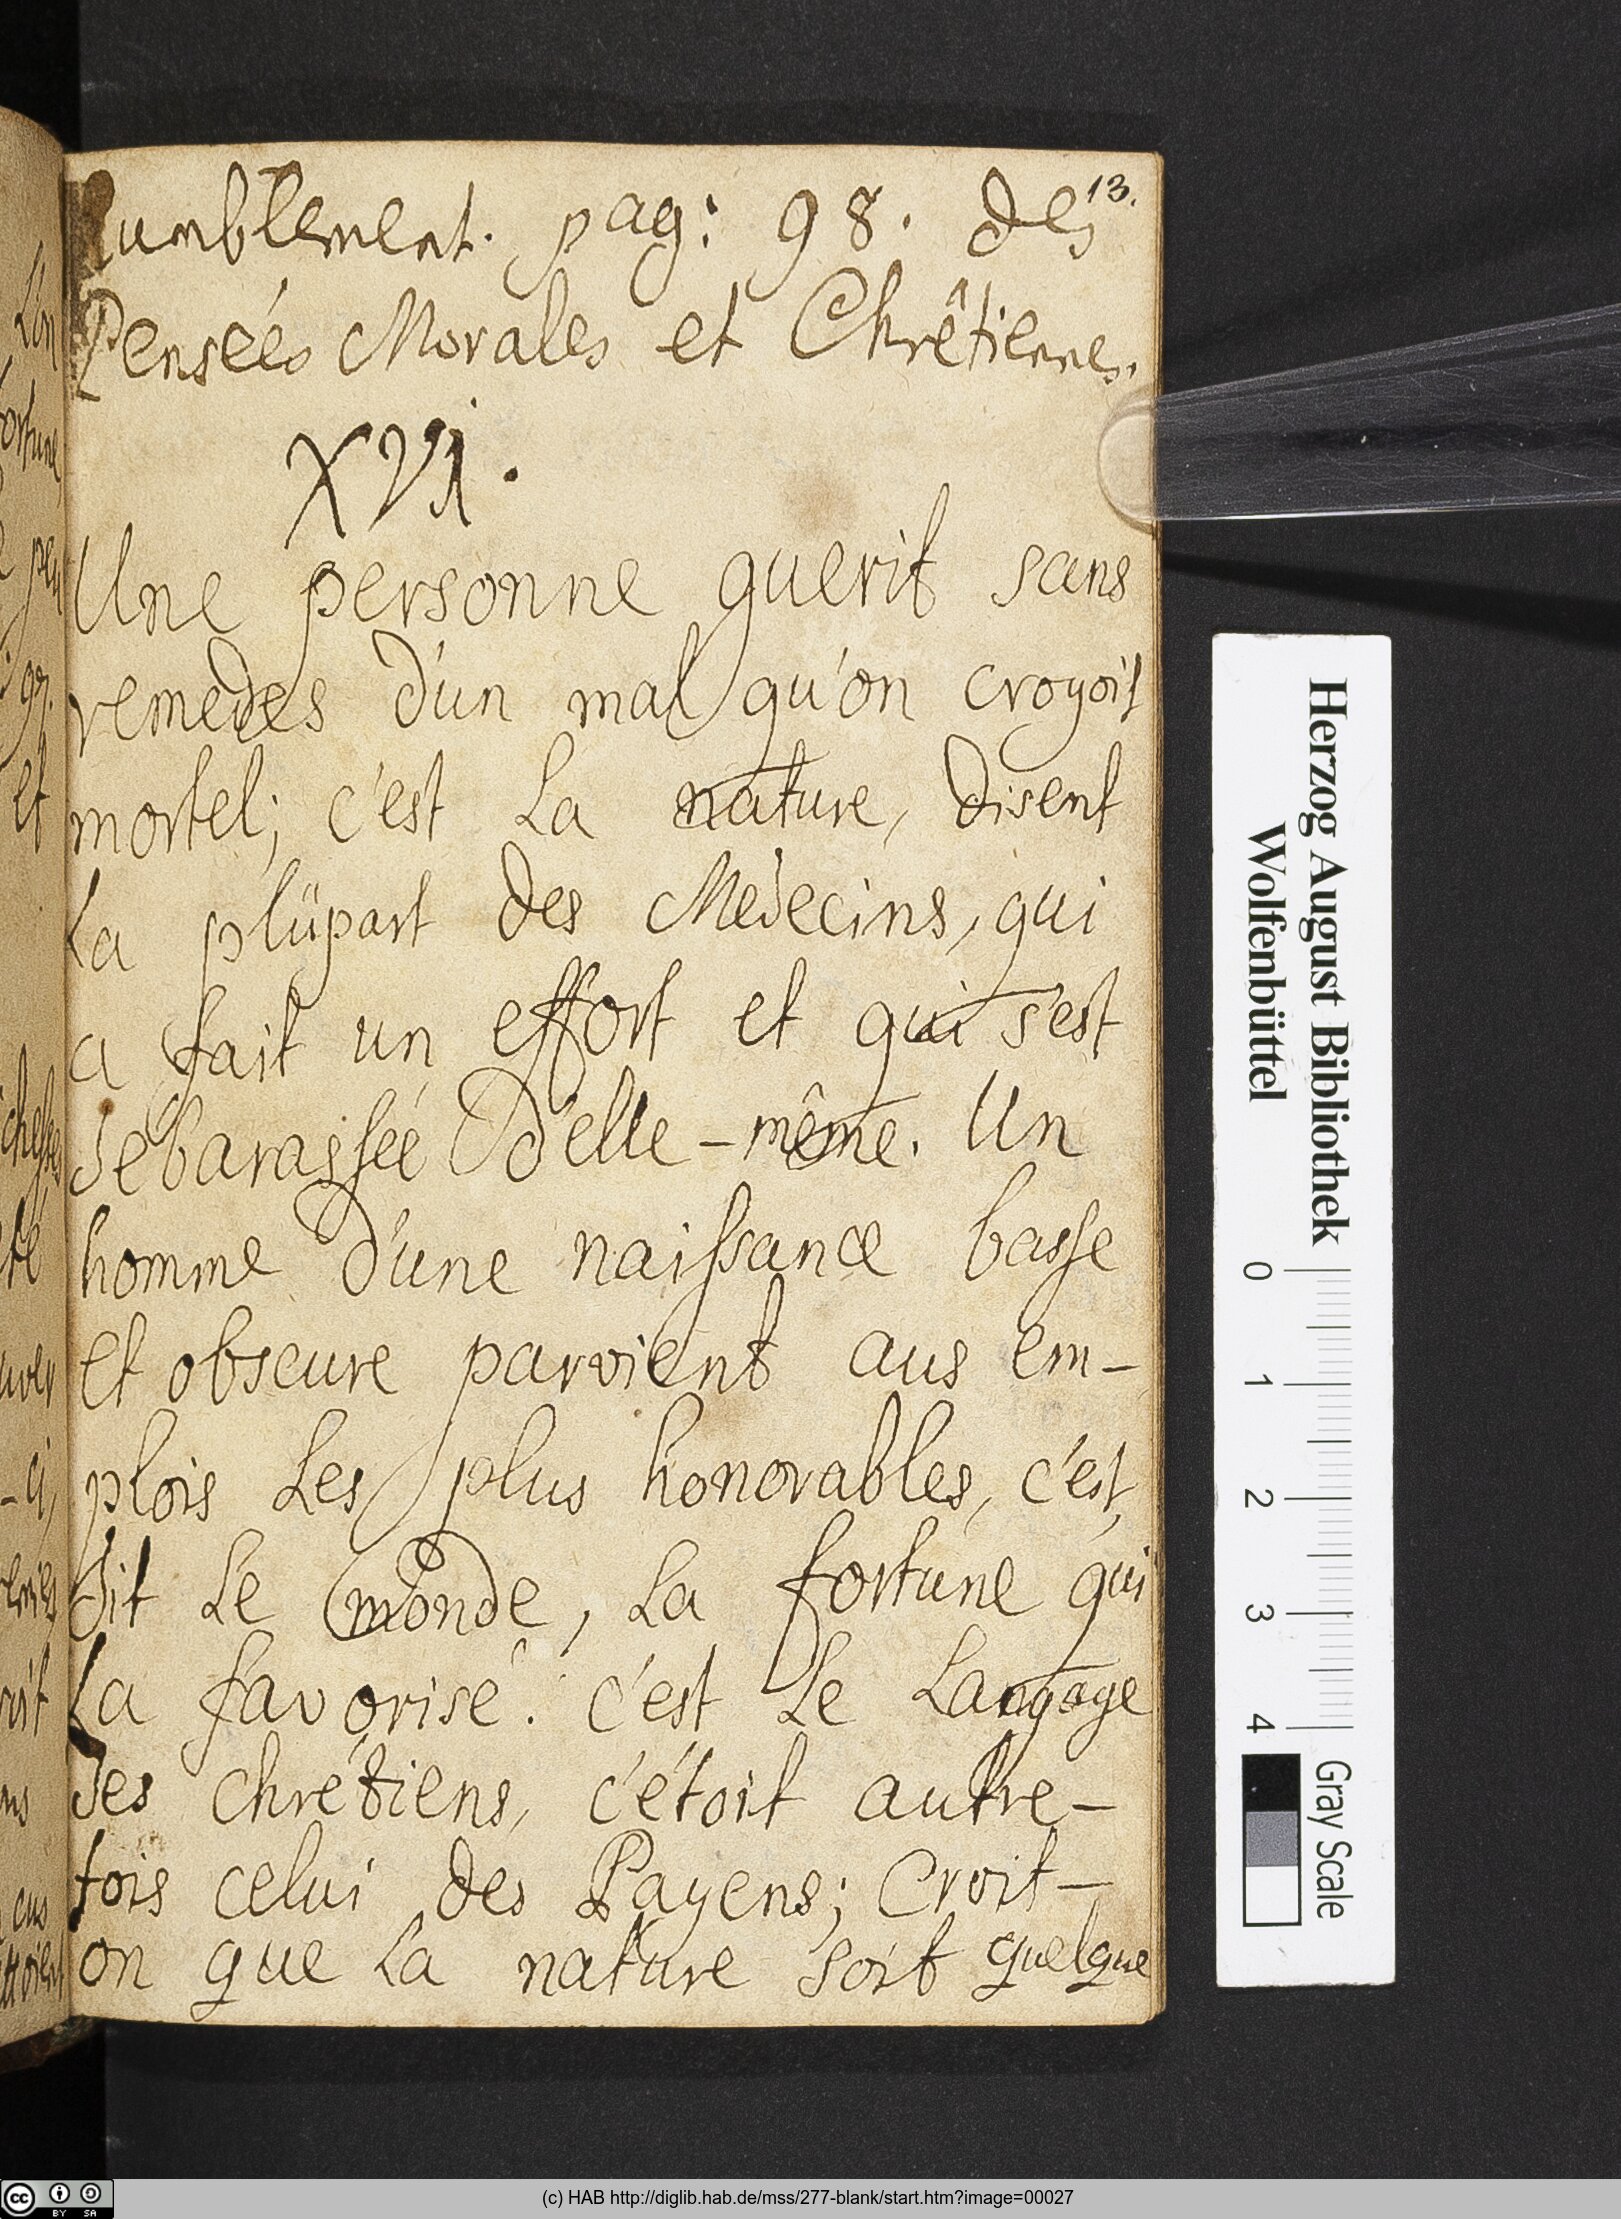 13.
humblement. pag: 98. des
Pensées Morales et Chrêtiennes.
XVI.
Une personne guerit sans
remedes d'un mal qu'on croyoit
mortel; c'est La nature, disent
La plûpart des Médecins, qui
a fait un effort et qui s'est
débarassée d'elle-même. Un
homme d'une naissance basse
et obscure parvient aus em-
plois Les plus honorables, c'est,
dit Le monde, La fortune qui
La favorisé. c'est Le Langage
des chrétiens, c'étoit autre-
fois celui des Payens; Croit-
on que La nature soit quelque
Lon
fortune
peu
et
ci,
cus
Herzog August Bibliothek
Wolfenbüttel
0 1 2 3 4
Gray Scale
cc BY SA
(c) HAB http://diglib.hab.de/mss/277-blank/start.htm?image=00027